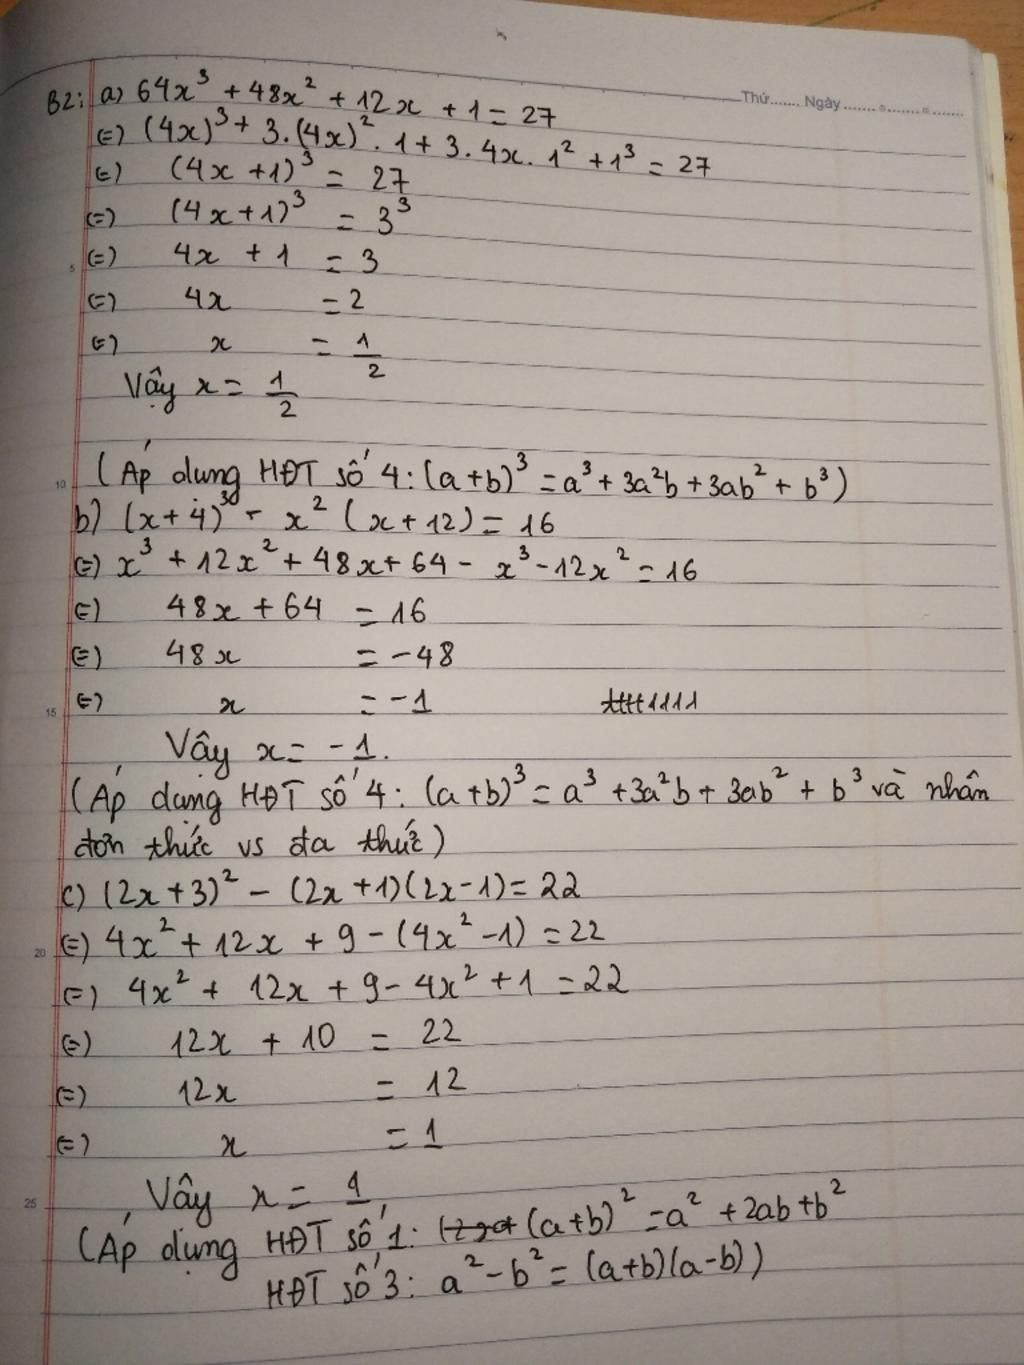 Thứ....... Ngày.......
B2: a) 64x³ + 48x² + 12x + 1 = 27
(=) (4x)³ + 3.(4x)².1 + 3.4x.1² + 1³ = 27
(=) (4x+1)³ = 27
(=) (4x+1)³ = 3³
5 (=) 4x + 1 = 3
(=) 4x = 2
(=) x = 1/2
Vậy x = 1/2
10 (Áp dung HĐT số 4: (a+b)³ = a³ + 3a²b + 3ab² + b³)
b) (x+4)³ - x² (x+12) = 16
(=) x³ + 12x² + 48x + 64 - x³ - 12x² = 16
(=) 48x + 64 = 16
(=) 48x = -48
15 (=) x = -1
Vậy x = -1.
(Áp dụng HĐT số 4: (a+b)³ = a³ + 3a²b + 3ab² + b³ và nhân
đơn thức vs đa thức)
c) (2x+3)² - (2x+1)(2x-1) = 22
20 (=) 4x² + 12x + 9 - (4x² - 1) = 22
(=) 4x² + 12x + 9 - 4x² + 1 = 22
(=) 12x + 10 = 22
(=) 12x = 12
(=) x = 1
25 Vậy x = 1
(Áp dụng HĐT số 1: (a+b)² = a² + 2ab + b²
HĐT số 3: a² - b² = (a+b)(a-b))